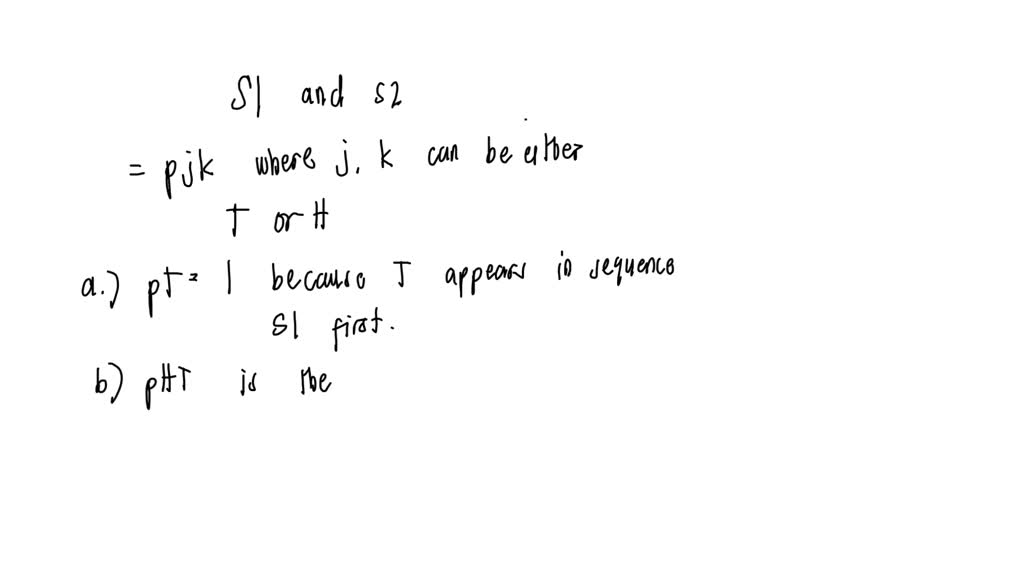 S1 and s2
= pjk where j, k can be either
T or H
a.) pT = 1 because T appears in sequence
S1 first.
b) pHT is the